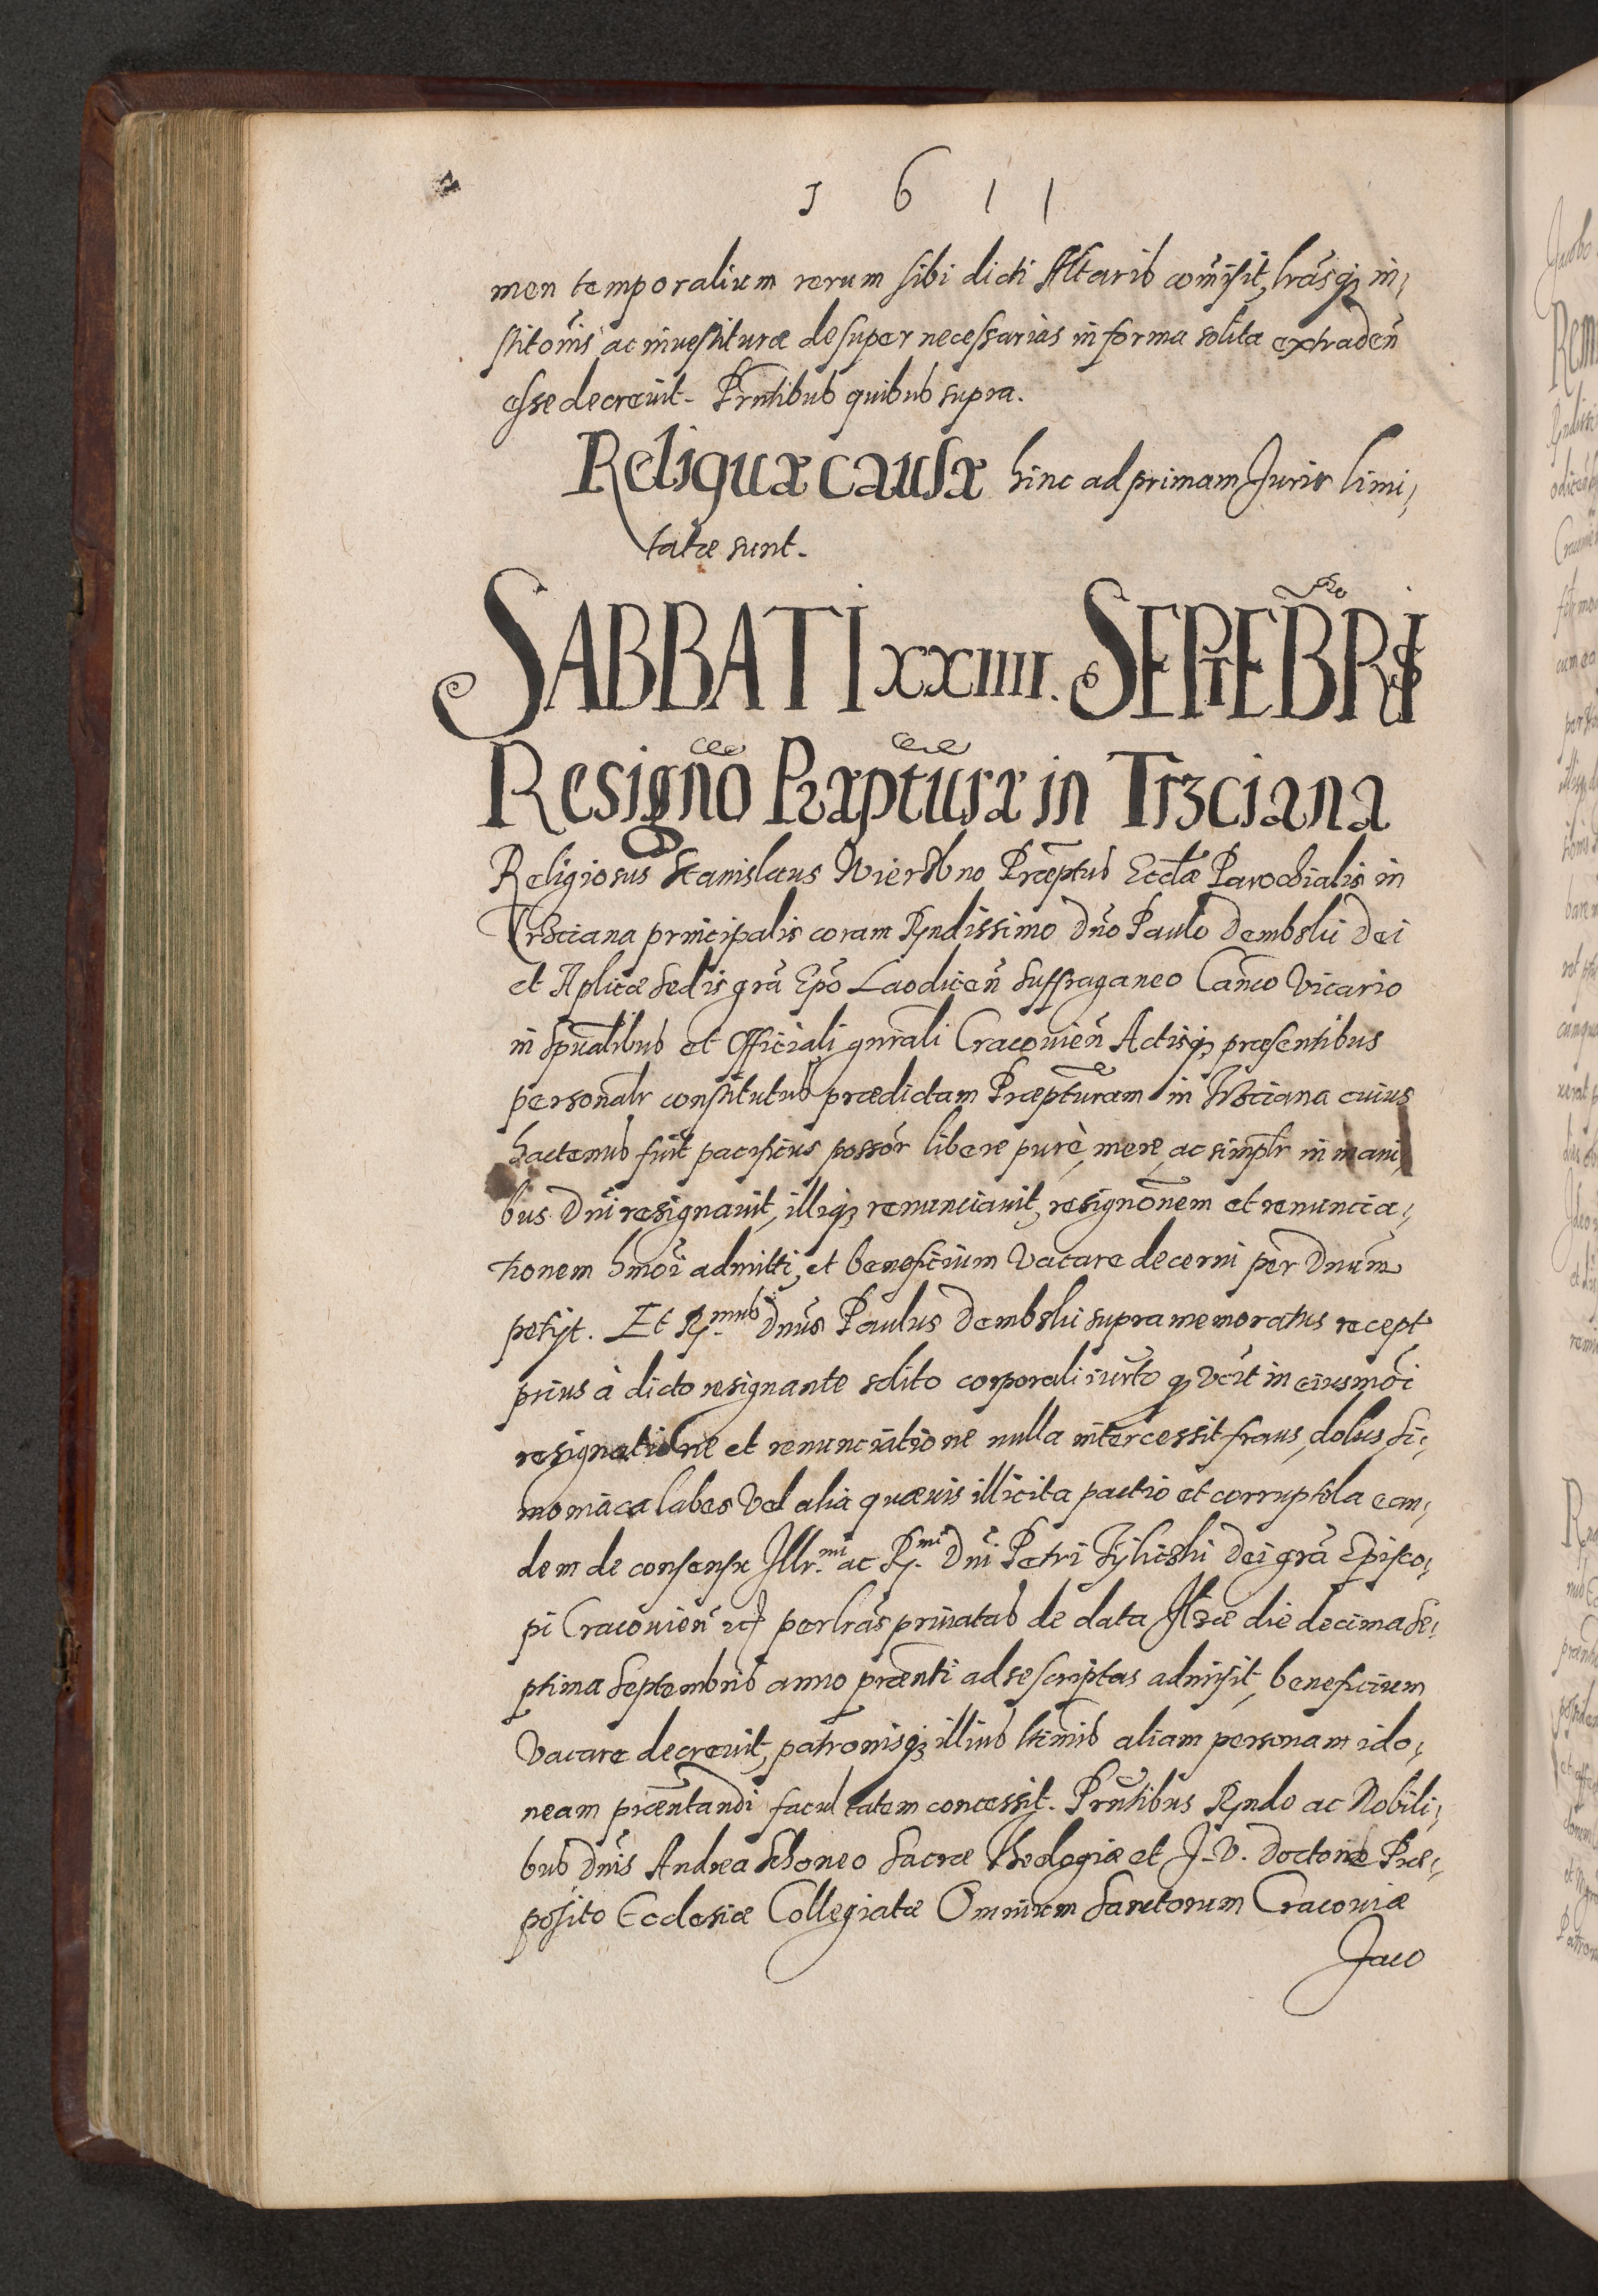 1 6 1 1
men temporalium rerum sibi dicti Altaris com̃isit, l̃rasq3 in,
stito͠nis ac inuestituræ desuper necessarias in forma solita extraden̄
esse decreuit. Pr̃ntibus quibus supra.
Reliquæ causæ hinc ad primam Juris limi,
tatæ sunt.
SABBATI xxiiii. SEPTEB̃RIS
Resignõ Præpturæ in Trzciana
Religiosus Stanislaus Wierzbno Præptus Eccl̃æ Parochialis in
Trzciana principalis coram Rn̄dissimo Dn̄o Paulo Dembski Dei
et Aplicæ Sedis grã Ep̄o Laodicen̄ Suffraganeo Can̄co Vicario
in Spũalibus et Officiali gn̄rali Cracouien̄ Actisq3 præsentibus
personal̃r constitutus prædictam Præpturam in Trzciana cuius
hactenus fuit pacificus possor̃ libere purè, mere, ac simpl̃r in mani,
bus Dn̄i resignauit, illiq3 renunciauit, resigno͠nem et renuncia,
tionem hmõi admitti, et beneficium vacare decerni per Dnum̃
petijt. Et R.mus Dnus̃ Paulus Dembski supra memoratus recept
prius à dicto resignante solito corporali iurto͠ q̃ vt̃ in eiusmõi
resignatione et renunciatione nulla intercessit fraus, dolus, si,
moniaca labes vel alia quæuis illicita pactio et corruptela ean,
dem de consensu Illr.mi ac R.mi Dn̄i Petri Tylicski Dei grã Episco,
pi Cracouien̄ etc per l̃ras priuatas de data Ilzæ die decima Se,
ptima Septembris anno præn̄ti ad se scriptas admisit, beneficium
vacare decreuit, patronisq3 illius l̃timis aliam personam ido,
neam præn̄tandi facultatem concessit. Pr̃ntibus Rn̄do ac Nobili,
bus Dn̄is Andrea Schoneo Sacræ Theologiæ et J. V. Doctore Præ,
posito Ecclesiæ Collegiatæ Omnium Sanctorum Cracouiæ
Jaco